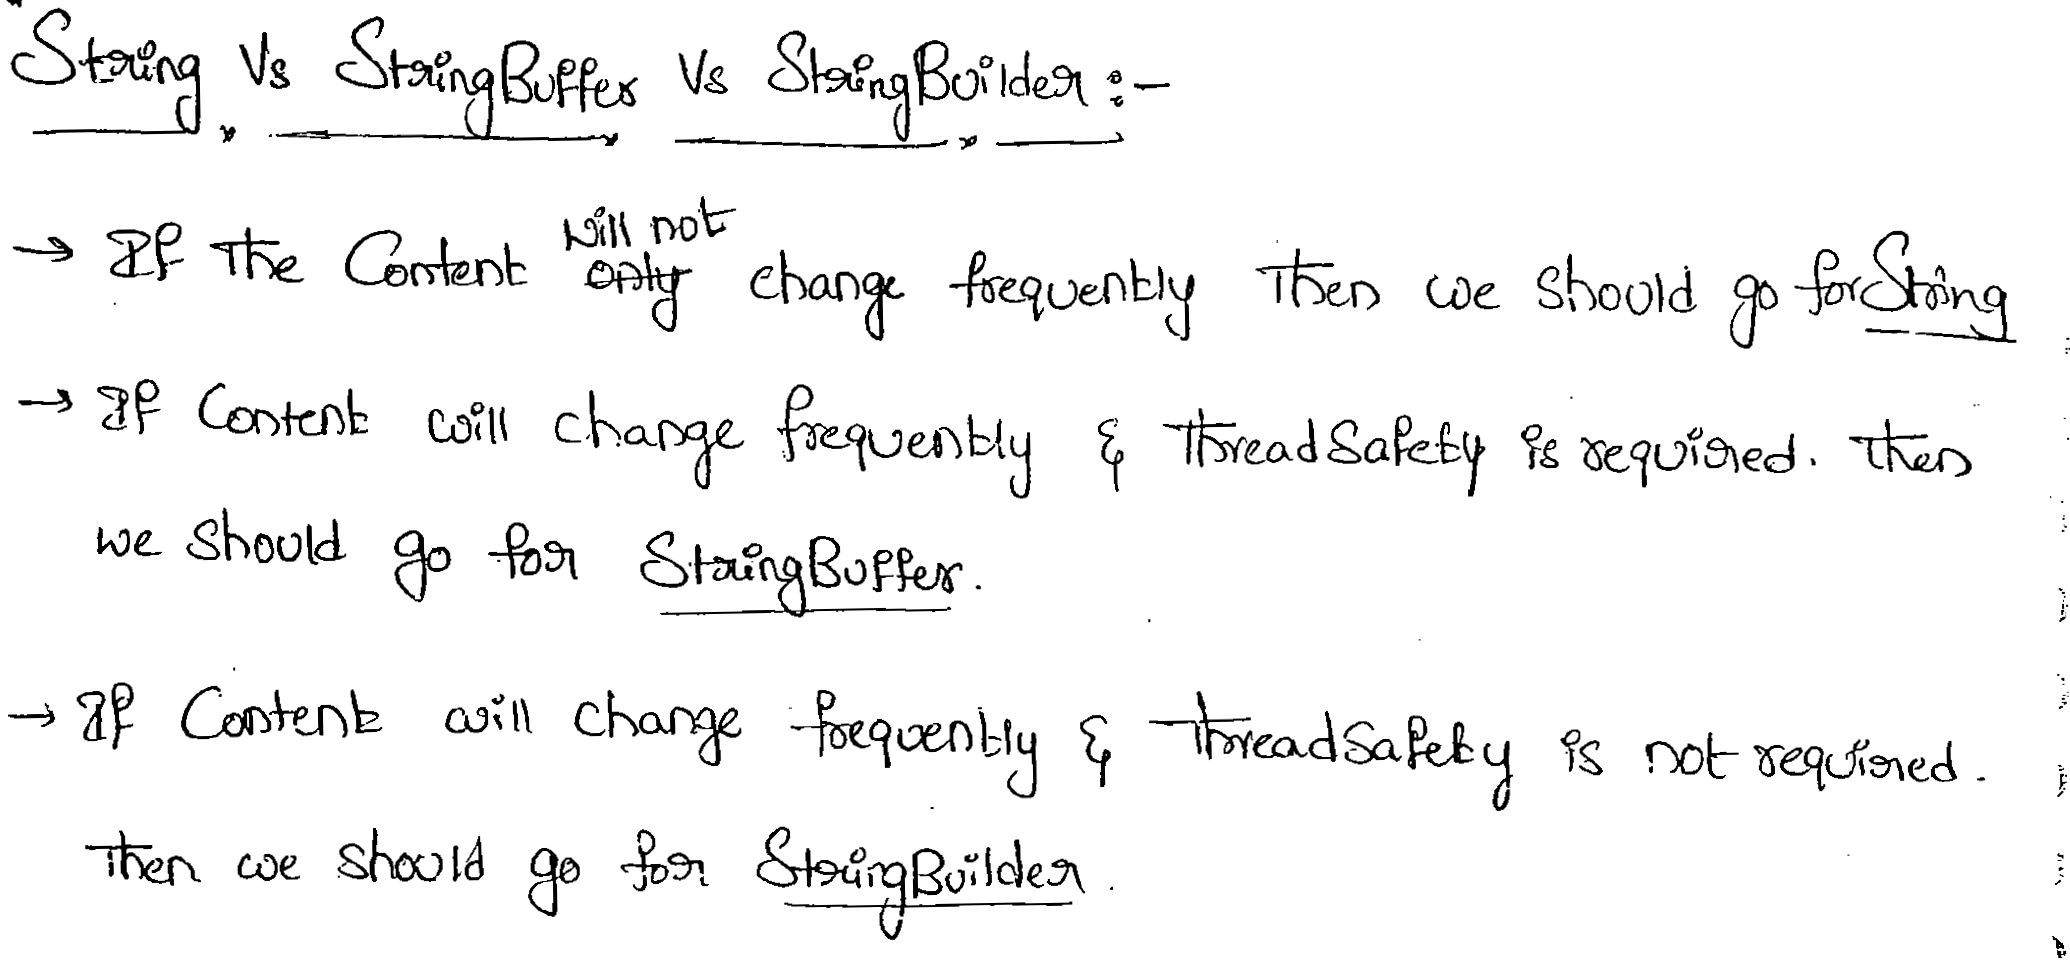 String Vs StringBuffer Vs StringBuilder :-
will not
→ If the Content only change frequently then we should go for String
→ If Content will change frequently & ThreadSafety is required. then
we should go for StringBuffer.
→ If Content will change frequently & ThreadSafety is not required.
Then we should go for StringBuilder.